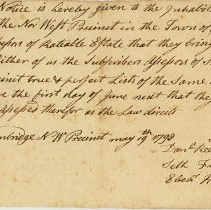 Notice is hereby given to the Inhabita
the Nor West Precinct in the Town of
ssessors of rateable Estate that they bring
Either of us the Subscribers Assessors of s
cinct true & perfect Lists of the Same
e the first day of June next that they
Assessed therefor as the Law directs
mbridge N W Precinct may 19th 1798
Seth
Ebenr